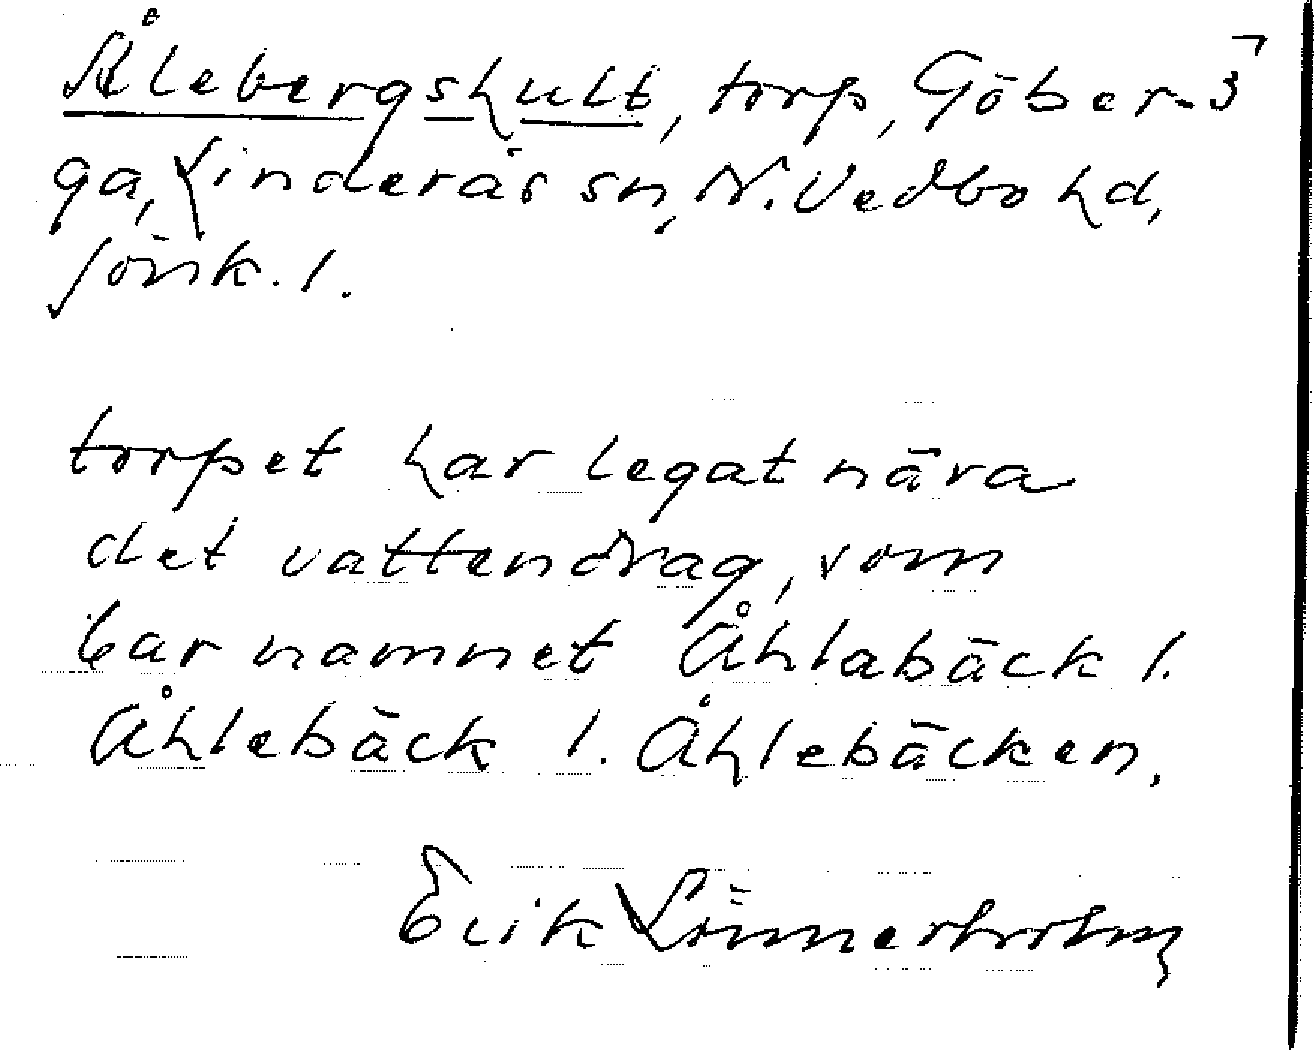 Ålebergshult, torp, Göber- 3
ga, Linderås sn, N. Vedbo hd,
Jönk. l.
torpet har legat nära
det vattendrag, som
bar namnet Åhlabäck l.
Åhlebäck l. Åhlebäcken.
Erik Lönnerholm